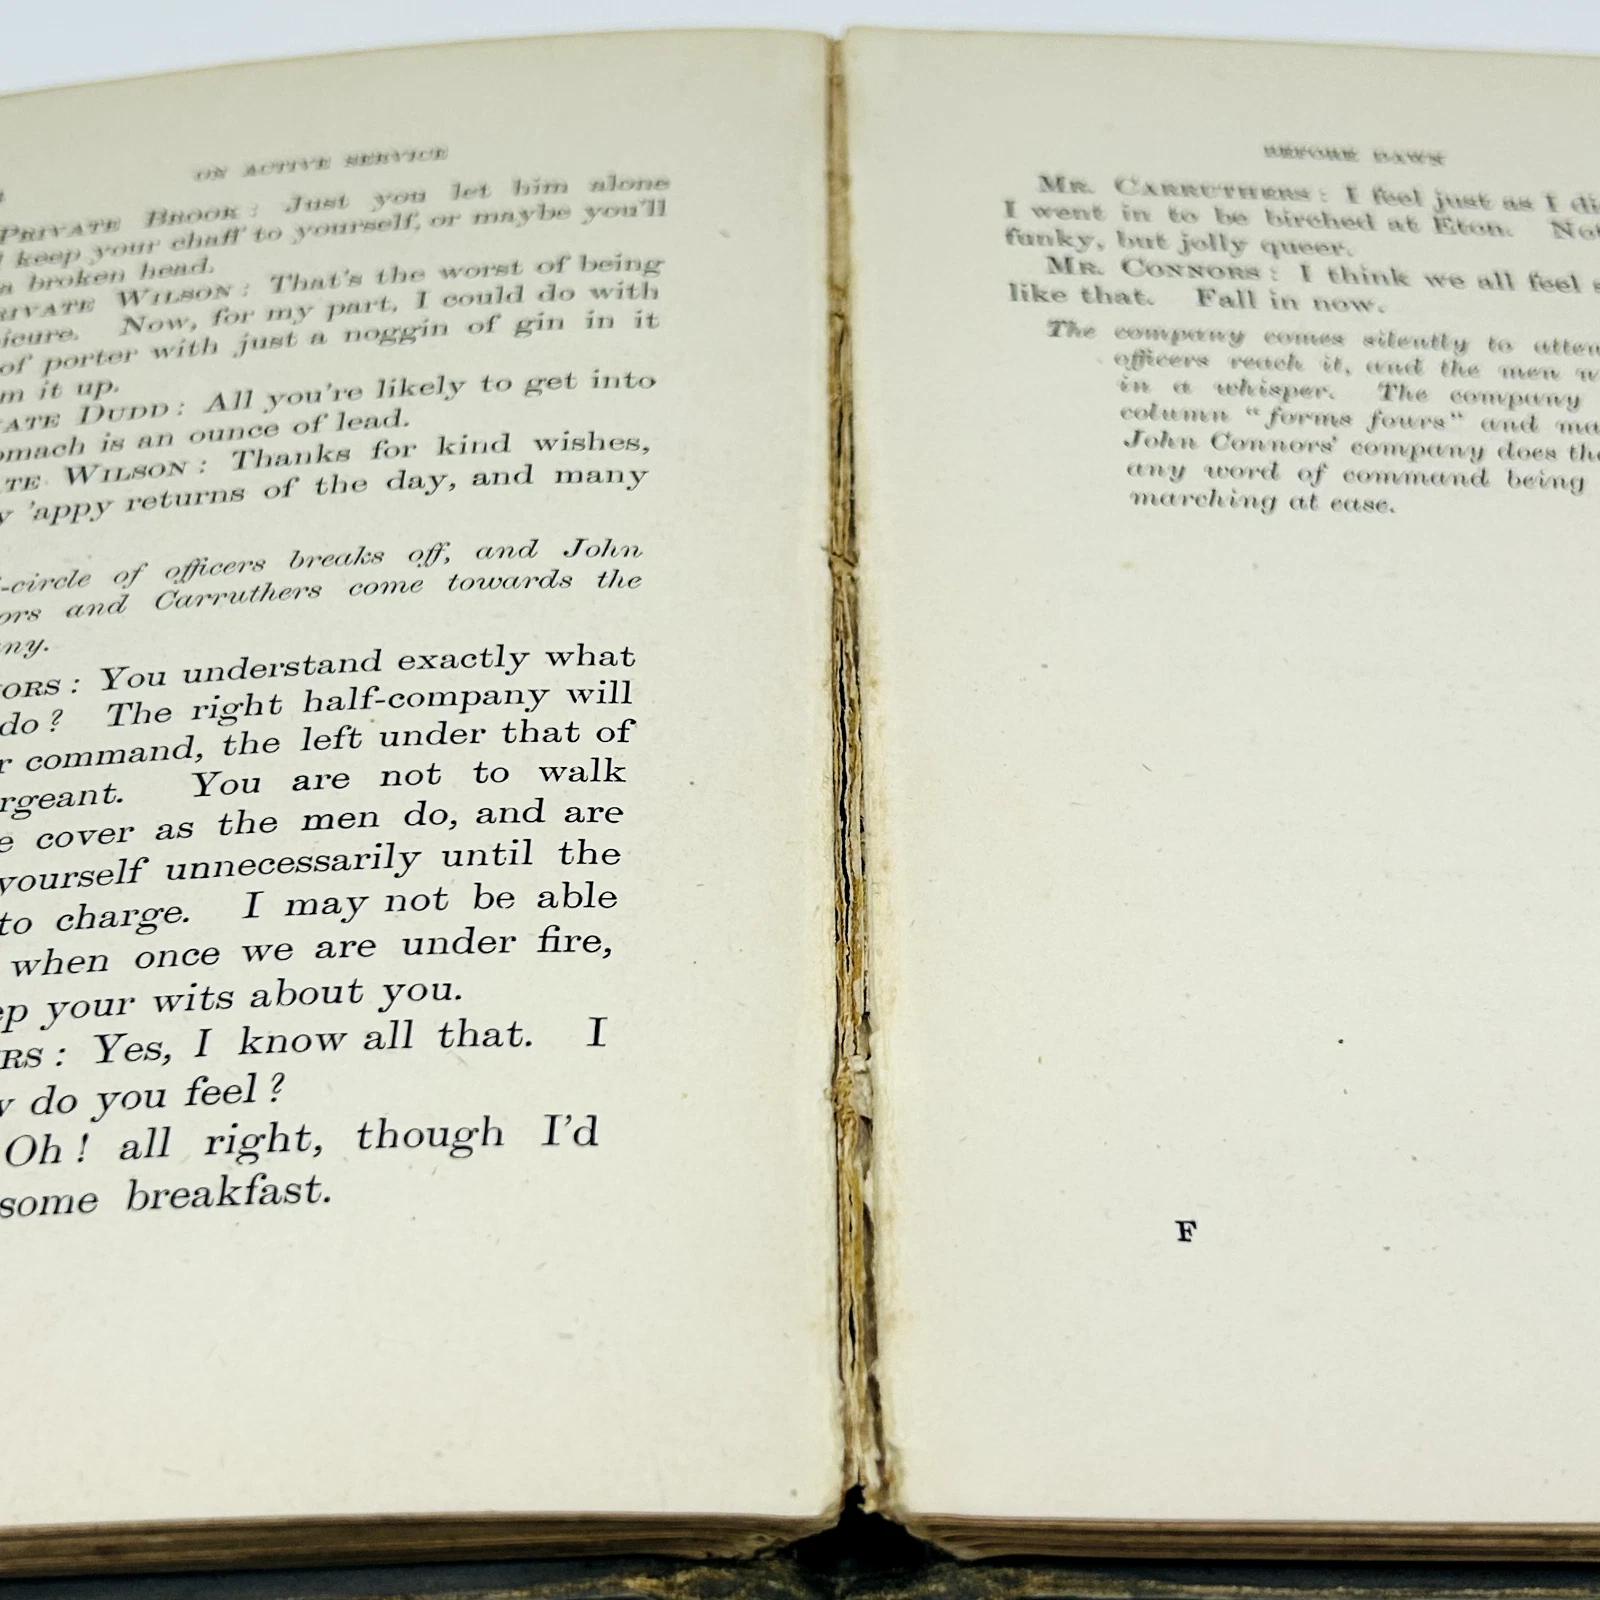 ON ACTIVE SERVICE
PRIVATE BROOK: Just you let him alone
keep your chaff to yourself, or maybe you'll
a broken head.
WILSON: That's the worst of being
Now, for my part, I could do with
of porter with just a noggin of gin in it
it up.
DUDD: All you're likely to get into
is an ounce of lead.
WILSON: Thanks for kind wishes,
'appy returns of the day, and many
-circle of officers breaks off, and John
and Carruthers come towards the
ORS: You understand exactly what
do? The right half-company will
command, the left under that of
You are not to walk
cover as the men do, and are
yourself unnecessarily until the
to charge. I may not be able
when once we are under fire,
your wits about you.
RS: Yes, I know all that. I
do you feel?
Oh! all right, though I'd
some breakfast.
BEFORE DAWN
MR. CARRUTHERS: I feel just as I
I went in to be birched at Eton.
funky, but jolly queer.
MR. CONNORS: I think we all feel
like that. Fall in now.
The company comes silently to
officers reach it, and the men
in a whisper. The company
column "forms fours" and
John Connors' company does
any word of command being
marching at ease.
F